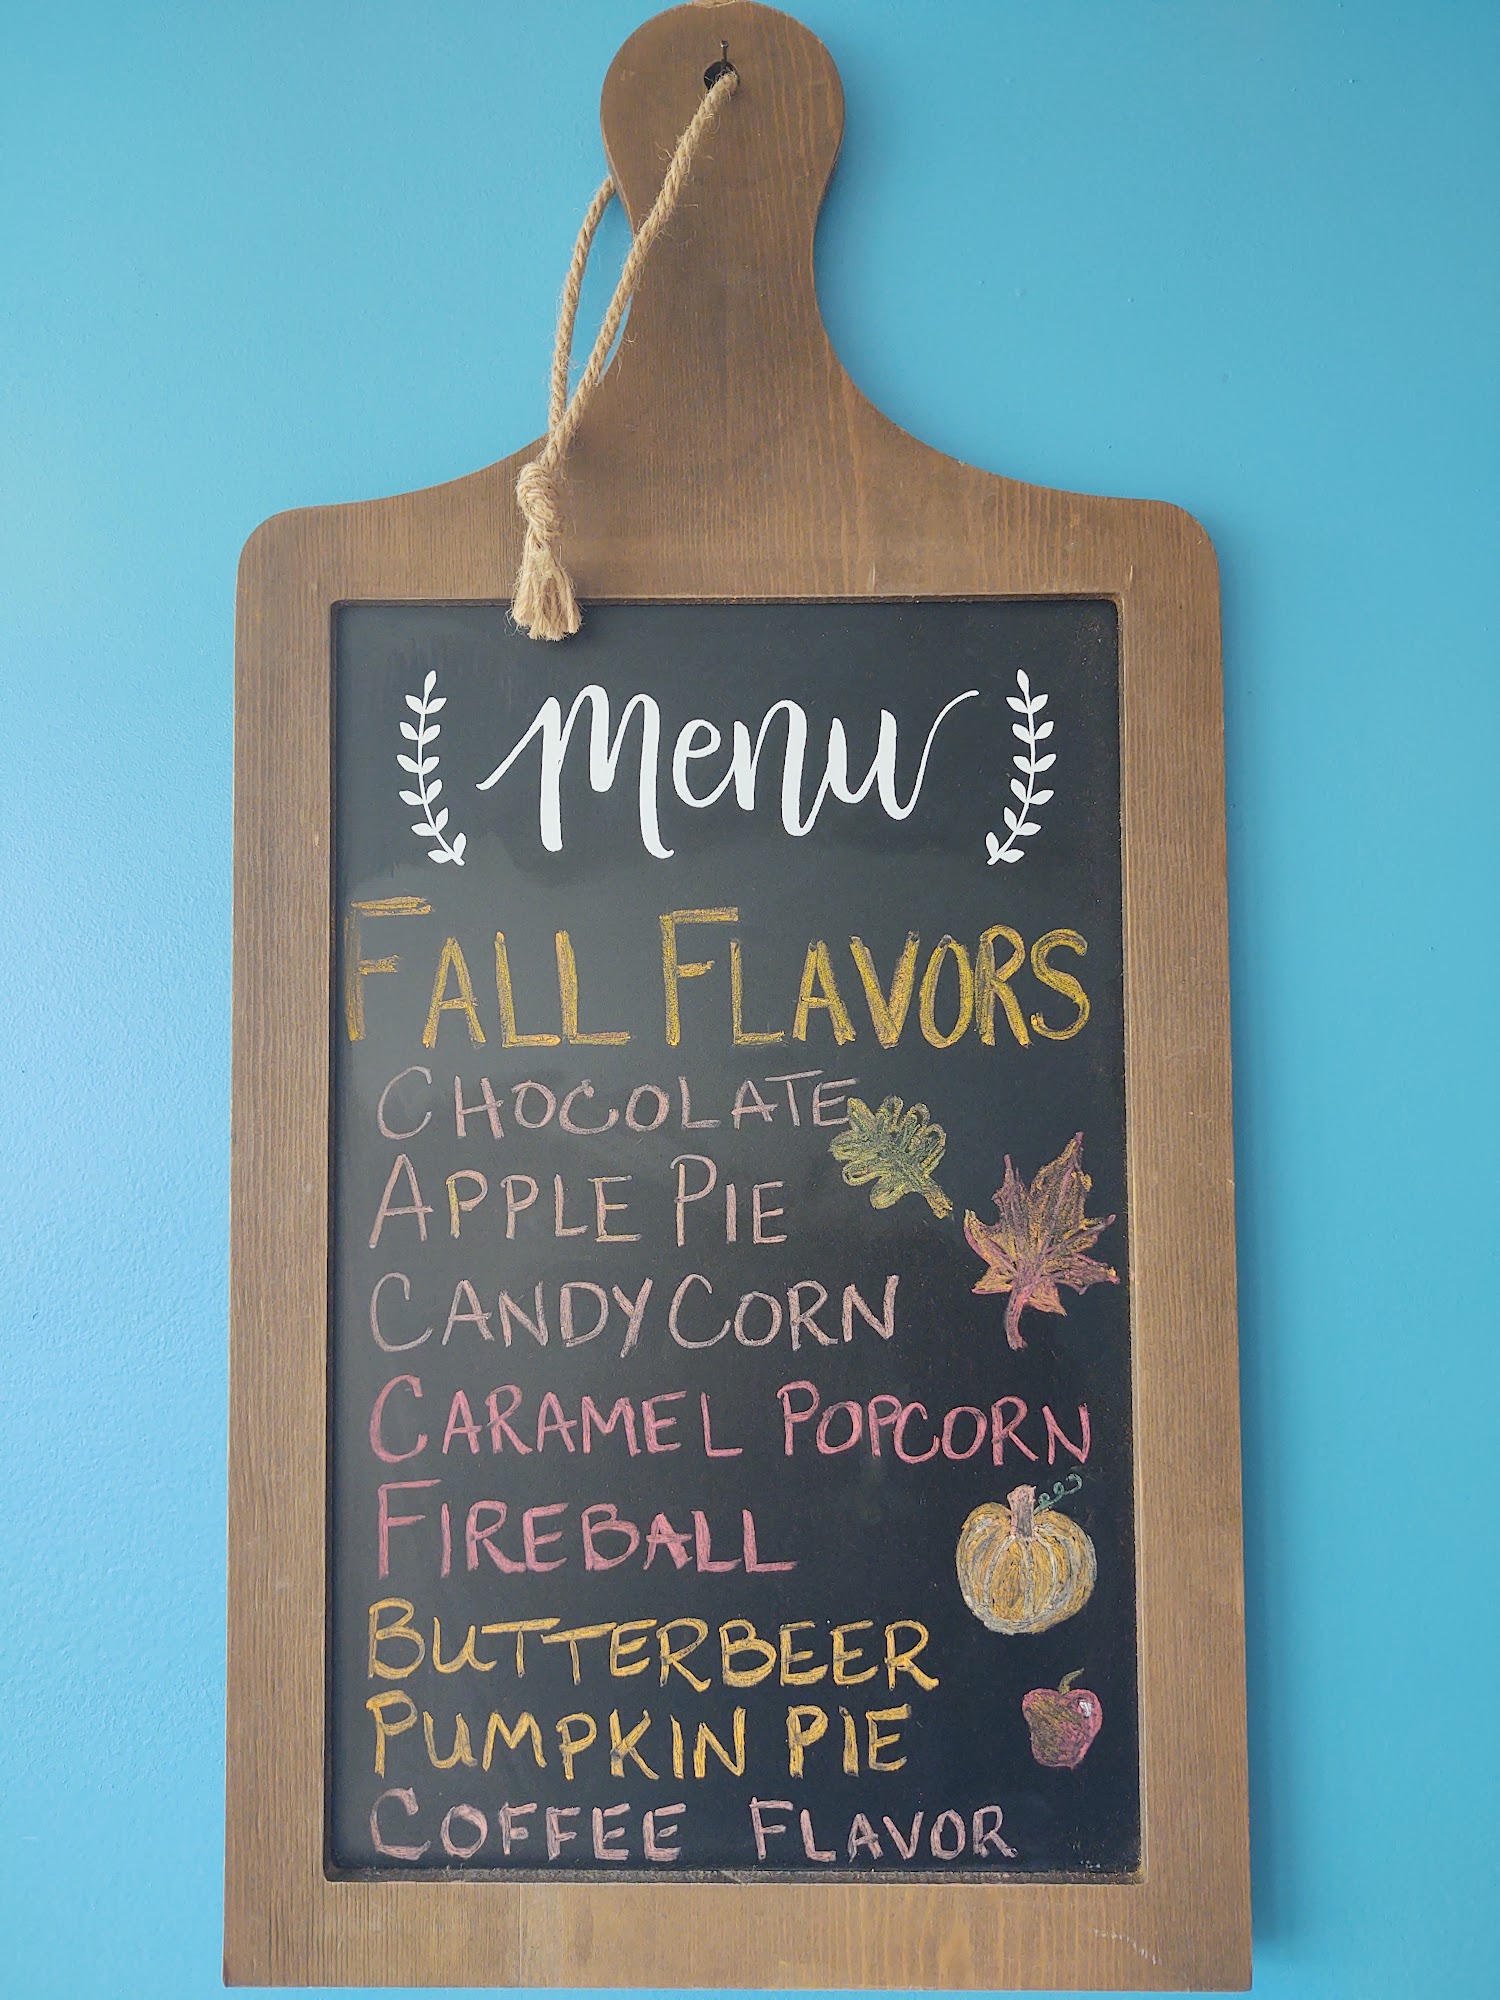 menu
FALL FLAVORS
CHOCOLATE
APPLE PIE
CANDY CORN
CARAMEL POPCORN
FIREBALL
BUTTERBEER
PUMPKIN PIE
COFFEE FLAVOR